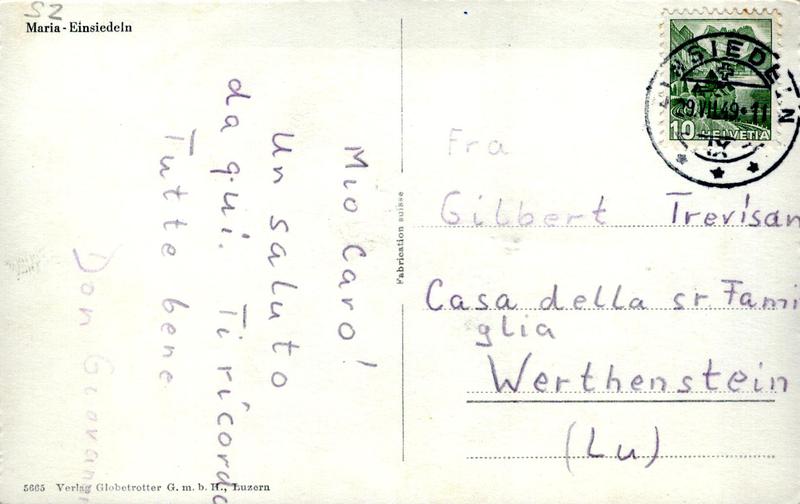 SZ
Maria - Einsiedeln
Mio Caro!
Un saluto
da qui. Ti ricordo
Tutte bene
Don Giovanni
5665 Verlag Globetrotter G. m. b. H., Luzern
Fabrication suisse
EINSIEDELN
29.VII.49-11
10 HELVETIA
Fra
Gilbert Trevisan
Casa della sr. Fami
glia
Werthenstein
(Lu)